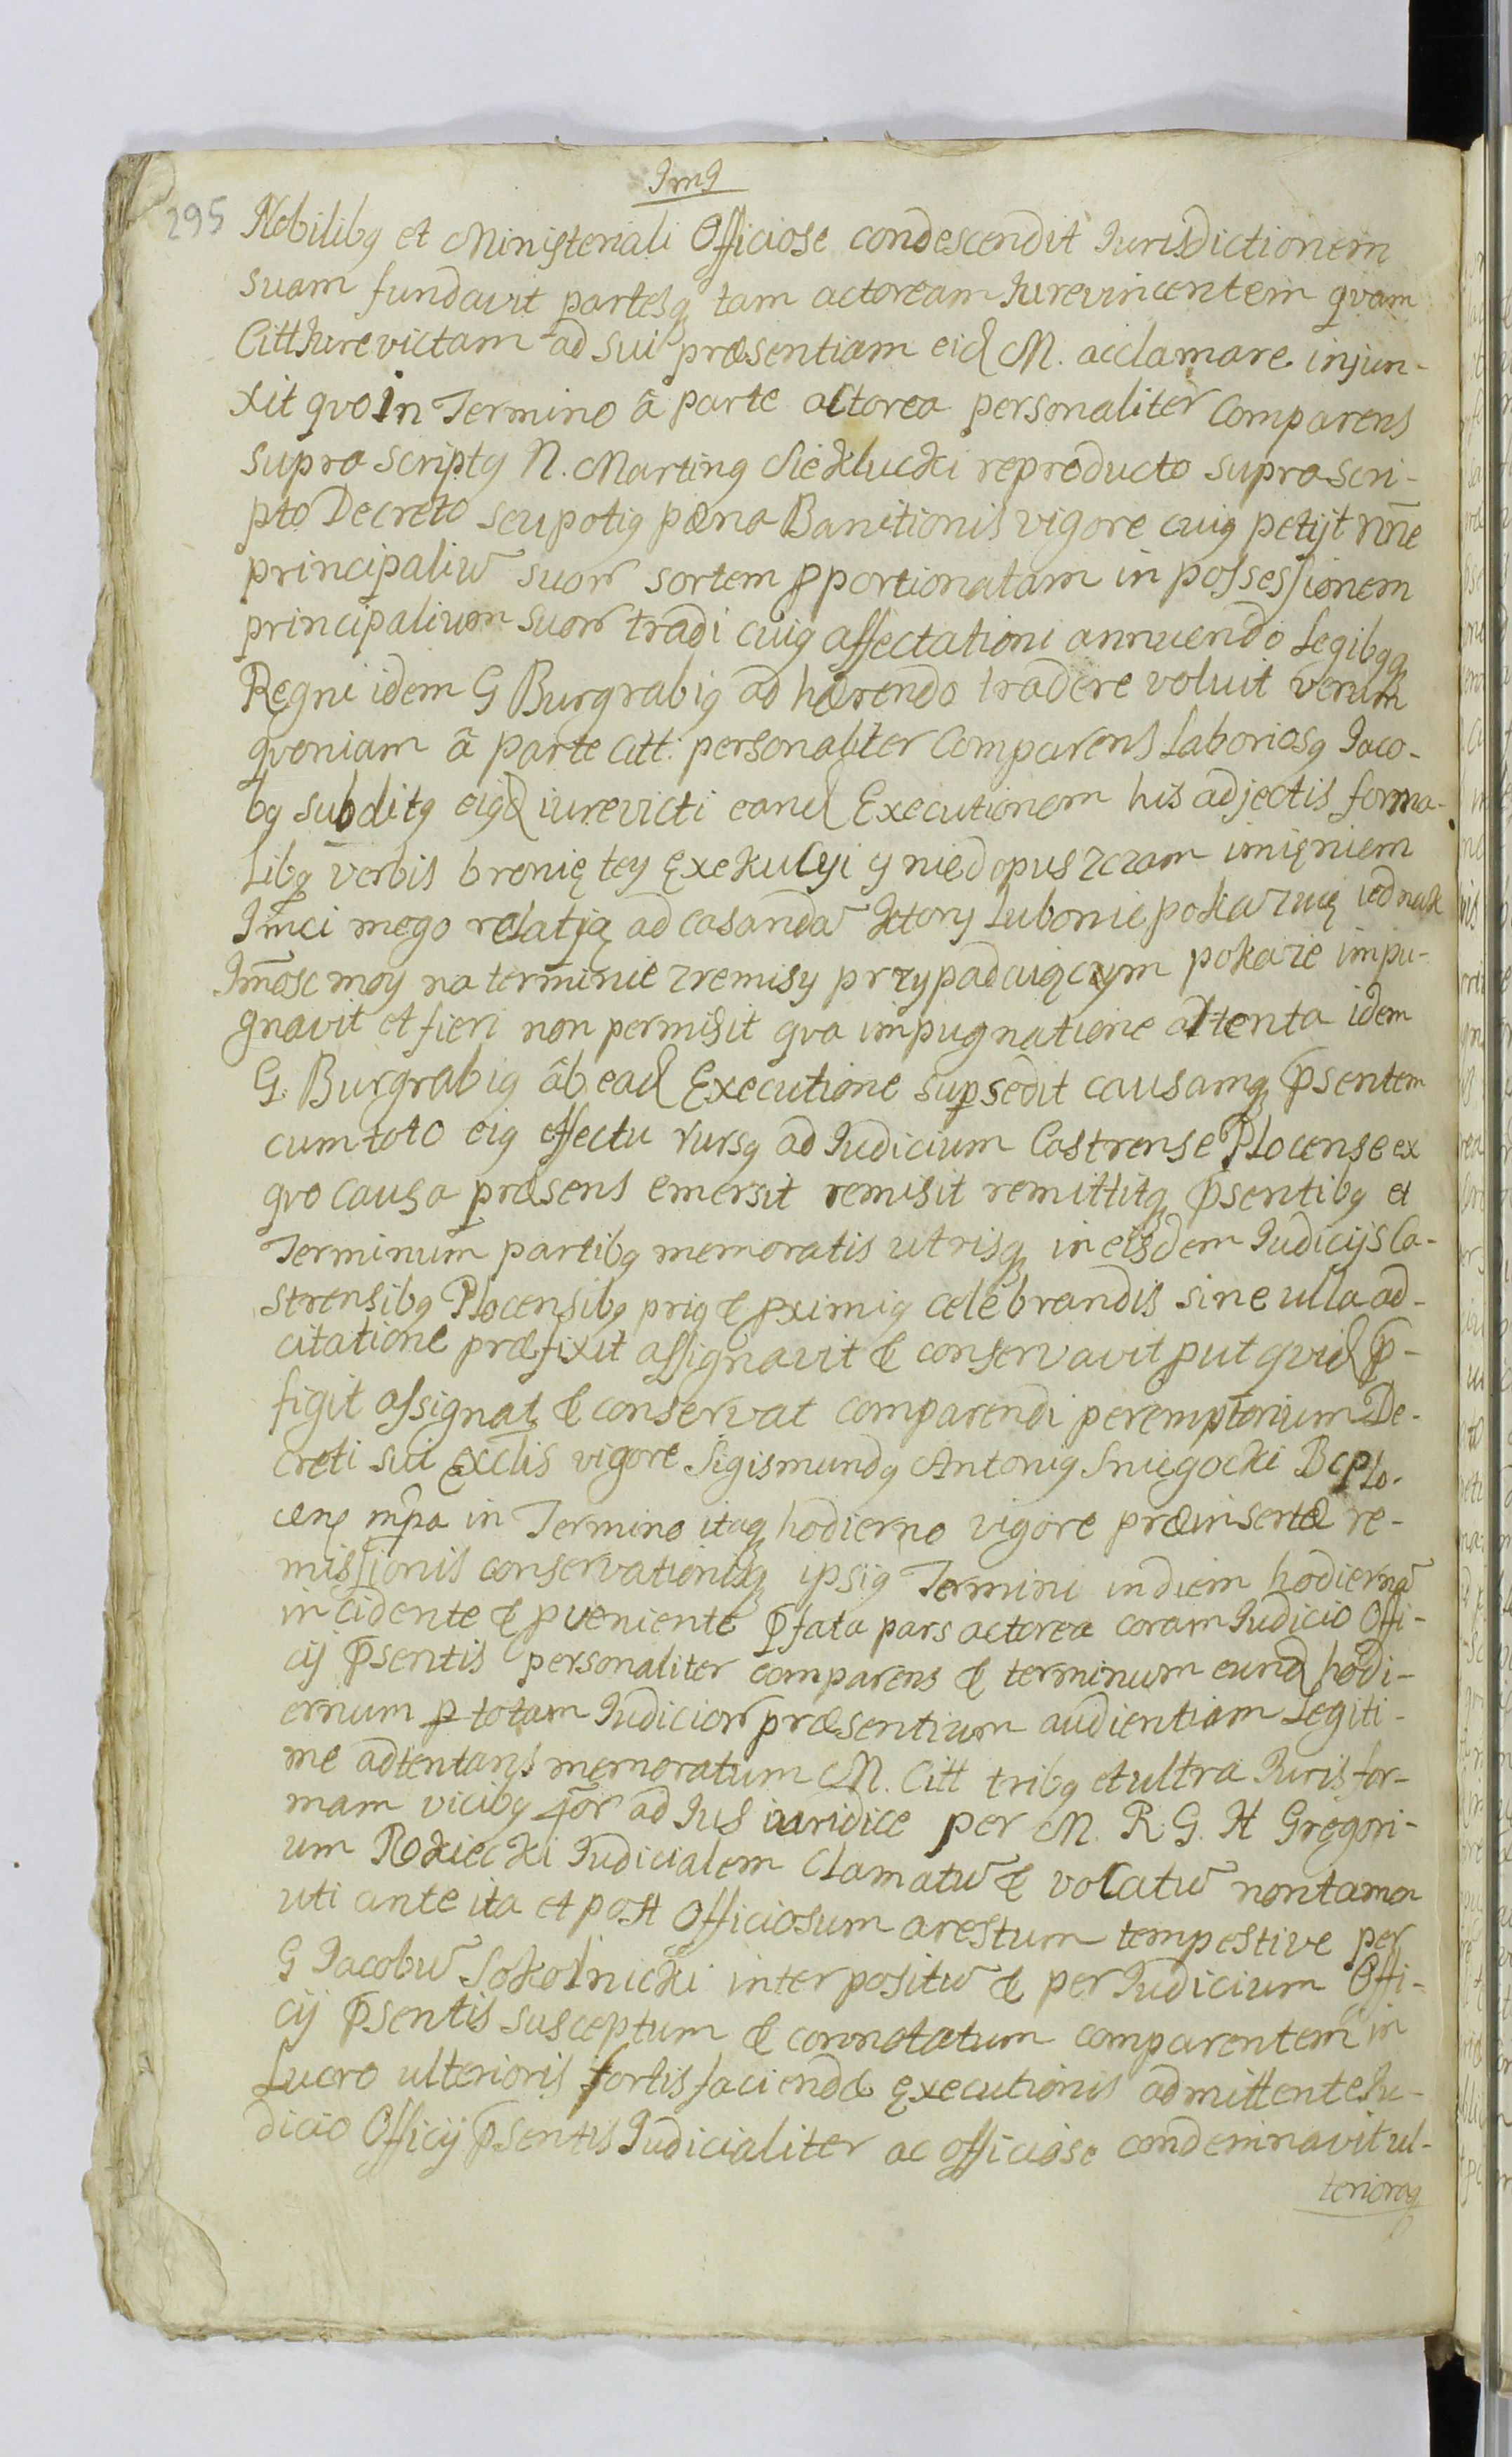 Img
295
Nobilibq et Ministeriali Officiose condescendit Iurisdictionem
suam fundavit partesq tam actoream Iurevincentem qvam
Citt Iurevictam ad sui præsentiam eid M. acclamare injun-
xit qvo in Termino â parte actorea personaliter Comparens
supra scriptq N. Martinq Sieklucki reproducto suprascri-
pto Decreto seu potiq pæna Banitionis vigore cuiq petijt nne
principaliũ suor sortem pportionatam in possessionem
principalium suor tradi cuiq affectationi annuendo Legibqq
Regni idem G Burgrabiq ad hærendo tradere voluit verum
qvoniam â parte Citt: personaliter Comparens Laboriosq Iaco-
bq subditq eiqd iurevicti eand Executionem his adjectis forma-
Libq verbis bronię tey Exekucyi y niedopuszczam imięniem
Imci mego relatją ad casandã ktory Lubo nie pokazuię iednak
Imosc moy na terminie zremisy przypadaiącym pokaże impu-
gnavit et fieri non permisit qva impugnatione attenta idem
G. Burgrabiq âb ead Executione supsedit causamq psentem
cum toto eiq effectu rursq ad Iudicium Castrense Plocense ex
qvo causa præsens emersit remisit remittitq psentibq et
Terminum partibq memoratis utrisq in eisdem Iudicijs Ca-
strensibq Plocensibq priq & pximiq celebrandis sine ulla ad-
citatione præfixit assignavit & conservavit put qvid p-
figit assignat & conservat comparendi peremptorium De-
creti sui exclis vigore Sigismundq Antoniq Sniegocki BcPlo-
cens mpa in Termino itaq hodierno vigore præinsertæ re-
missionis conservationisq ipsiq Termini in diem hodiernã
incidente & pveniente pfata pars actorea coram Iudicio Offi-
cij psentis personaliter comparens & terminum eund hodi-
ernum p totam Iudicior præsentium audientiam Legiti-
me adtentans memoratum M. Citt tribq et ultra Iuris for-
mam vicibq qor ad Ius iuridice per M. R. G. H Gregori-
um Rokicki Iudicialem Clamatũ & vocatũ non tamen
uti ante ita et post Officiosum arestum tempestive per
G Iacobũ Sokolnicki interpositũ & per Iudicium Offi-
cij psentis susceptum & connotatum comparentem in
Lucro ulterioris fortis faciendæ executionis admittente Iu-
dicio Officij psentis Iudicialiter ac officiose condemnavit ul-
teriorq